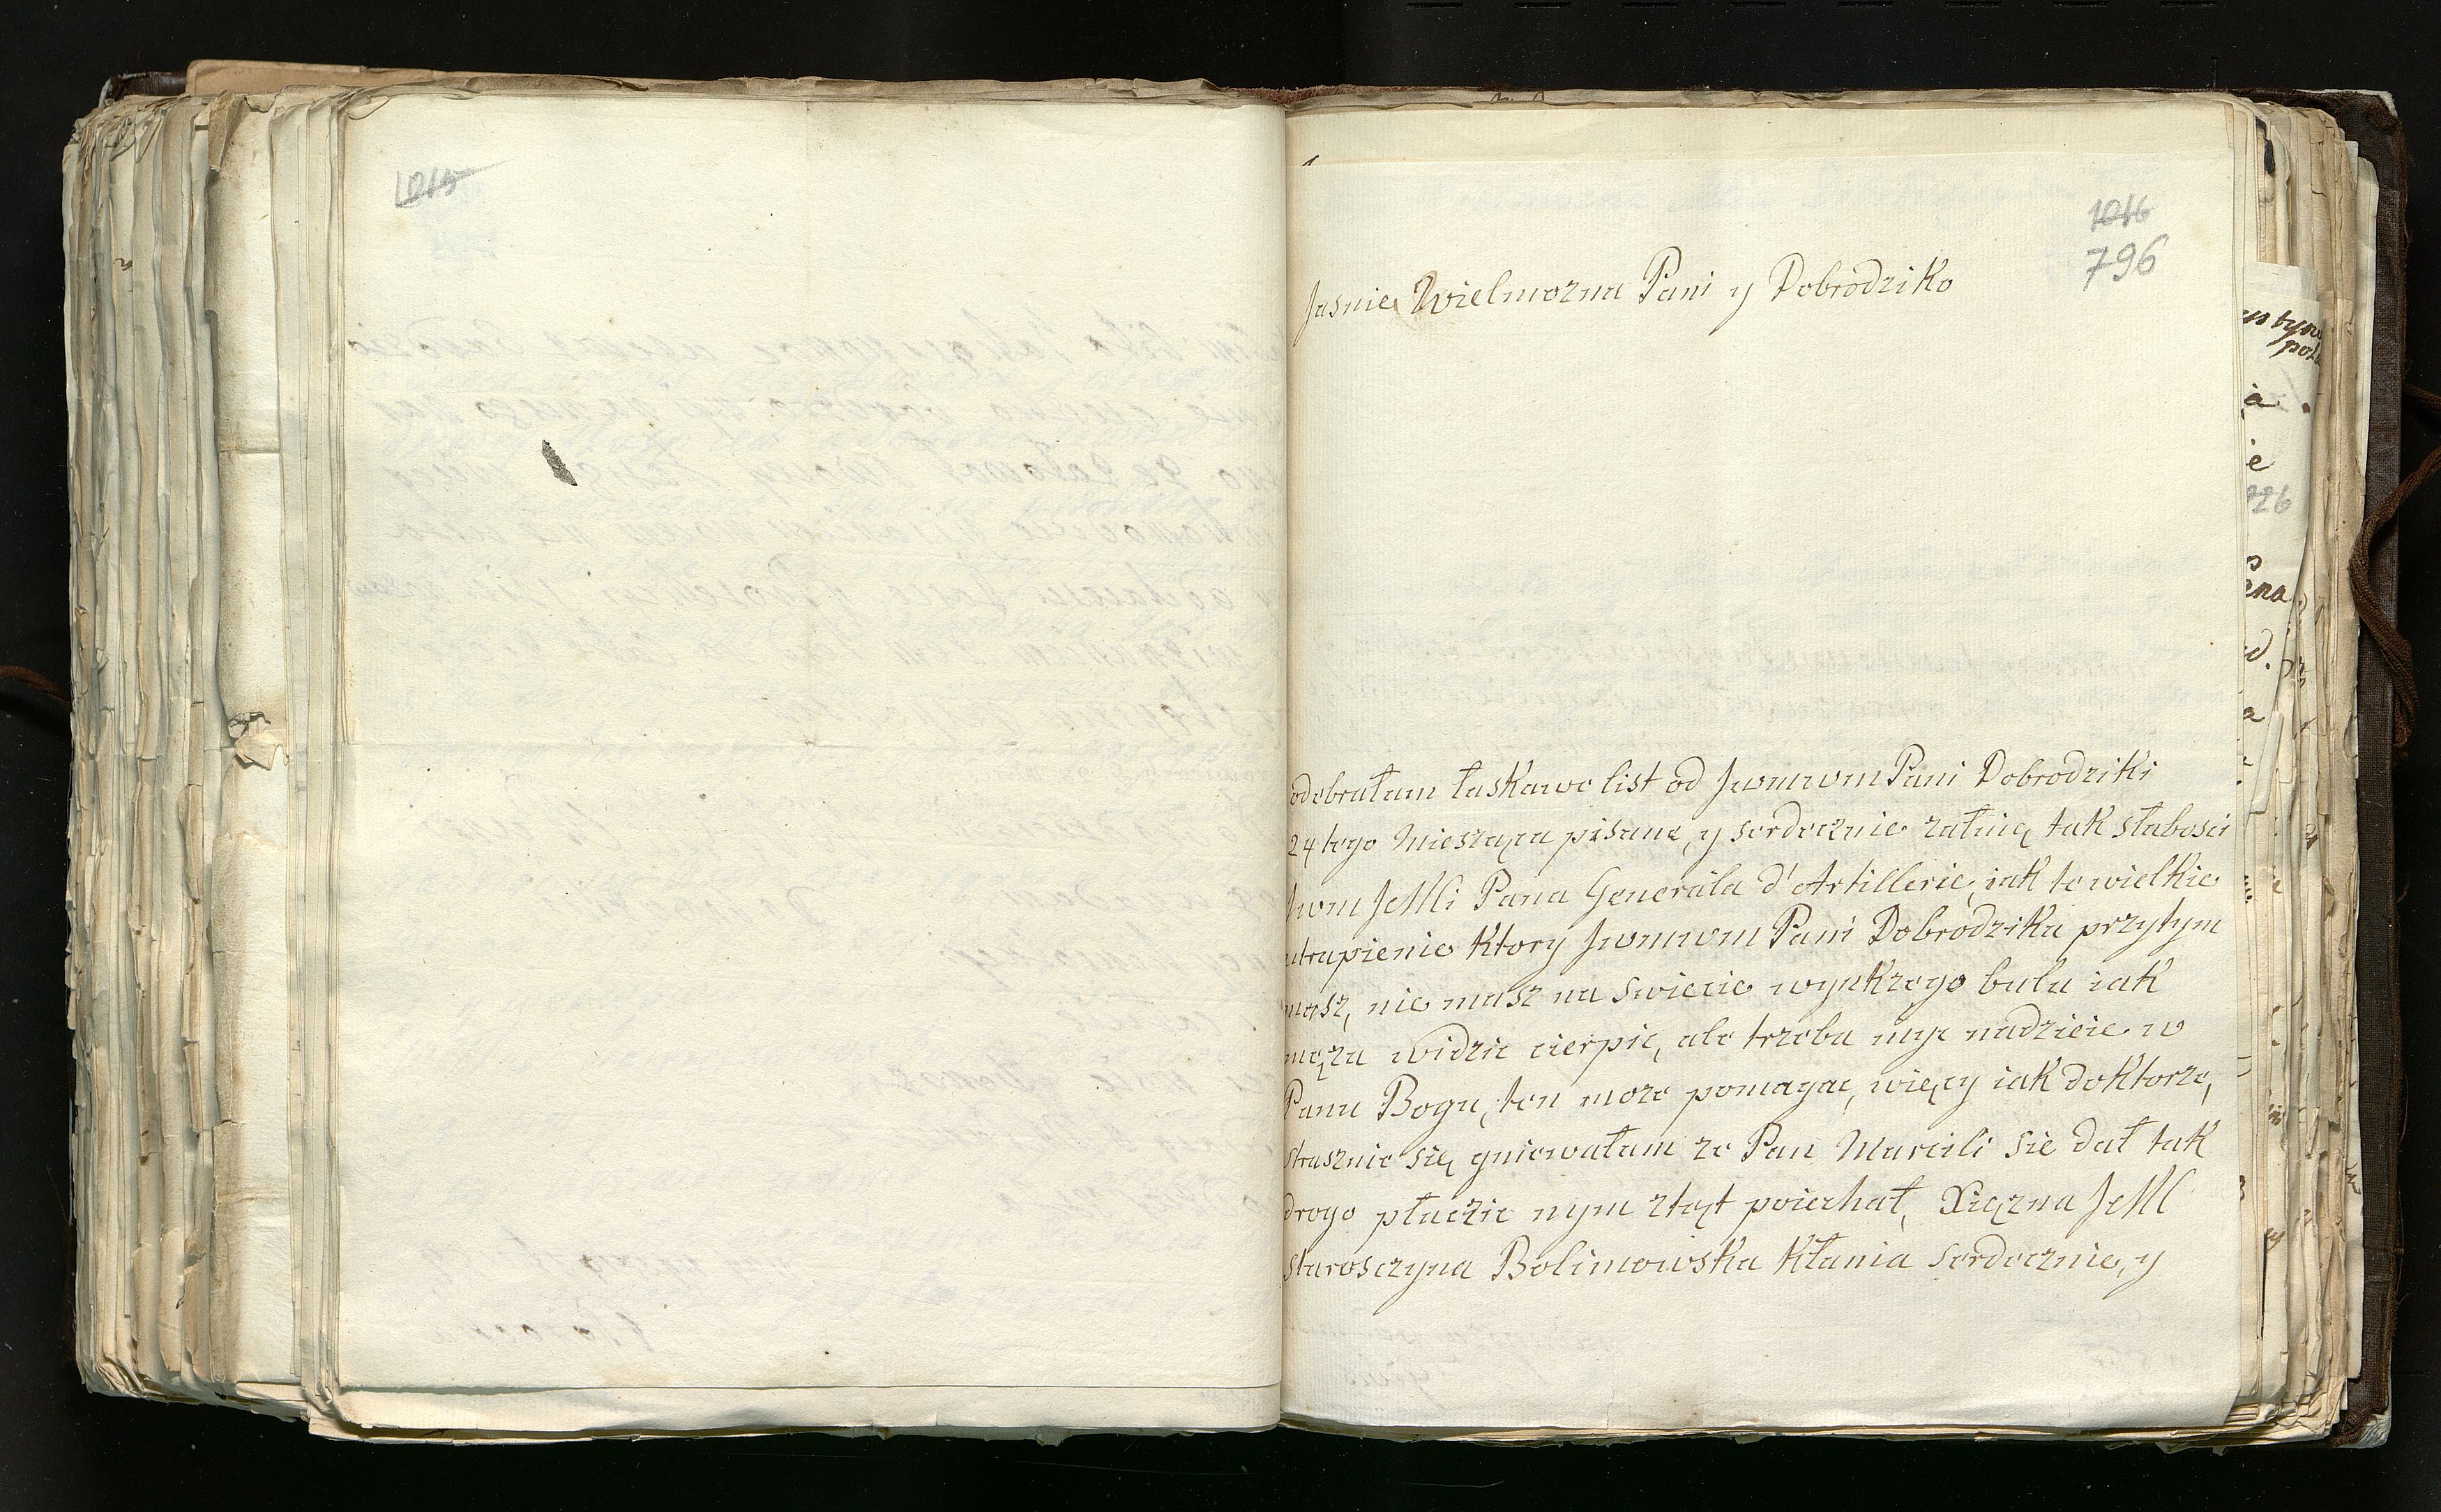 1015
1016
796
Jasnie Wielmozna Pani y Dobrodziko
odebrałam łaskawe list od Jwmwm Pani Dobrodziki
24 tego Miesząca pisane, y serdecznie załuię tak słabosci
Jwm JeMći Pana Generála d'Artillerie, iak te wielkie
utrapienie Ktory Jwmwm Pani Dobrodzika przytym
masz, nie masz na swiecie wynkzego bulu iak
męza widzic cierpic, ale trzeba myc nadzieie w
Panu Bogu, ten moze pomagac, więcy iak doktorze,
strasznie się gniewałam ze Pan Marcieli sie dał tak
drogo płaczic nym ztąt poiechał, Xięzna JeMC
starosczyna Bolimowska Kłania serdecznie, y